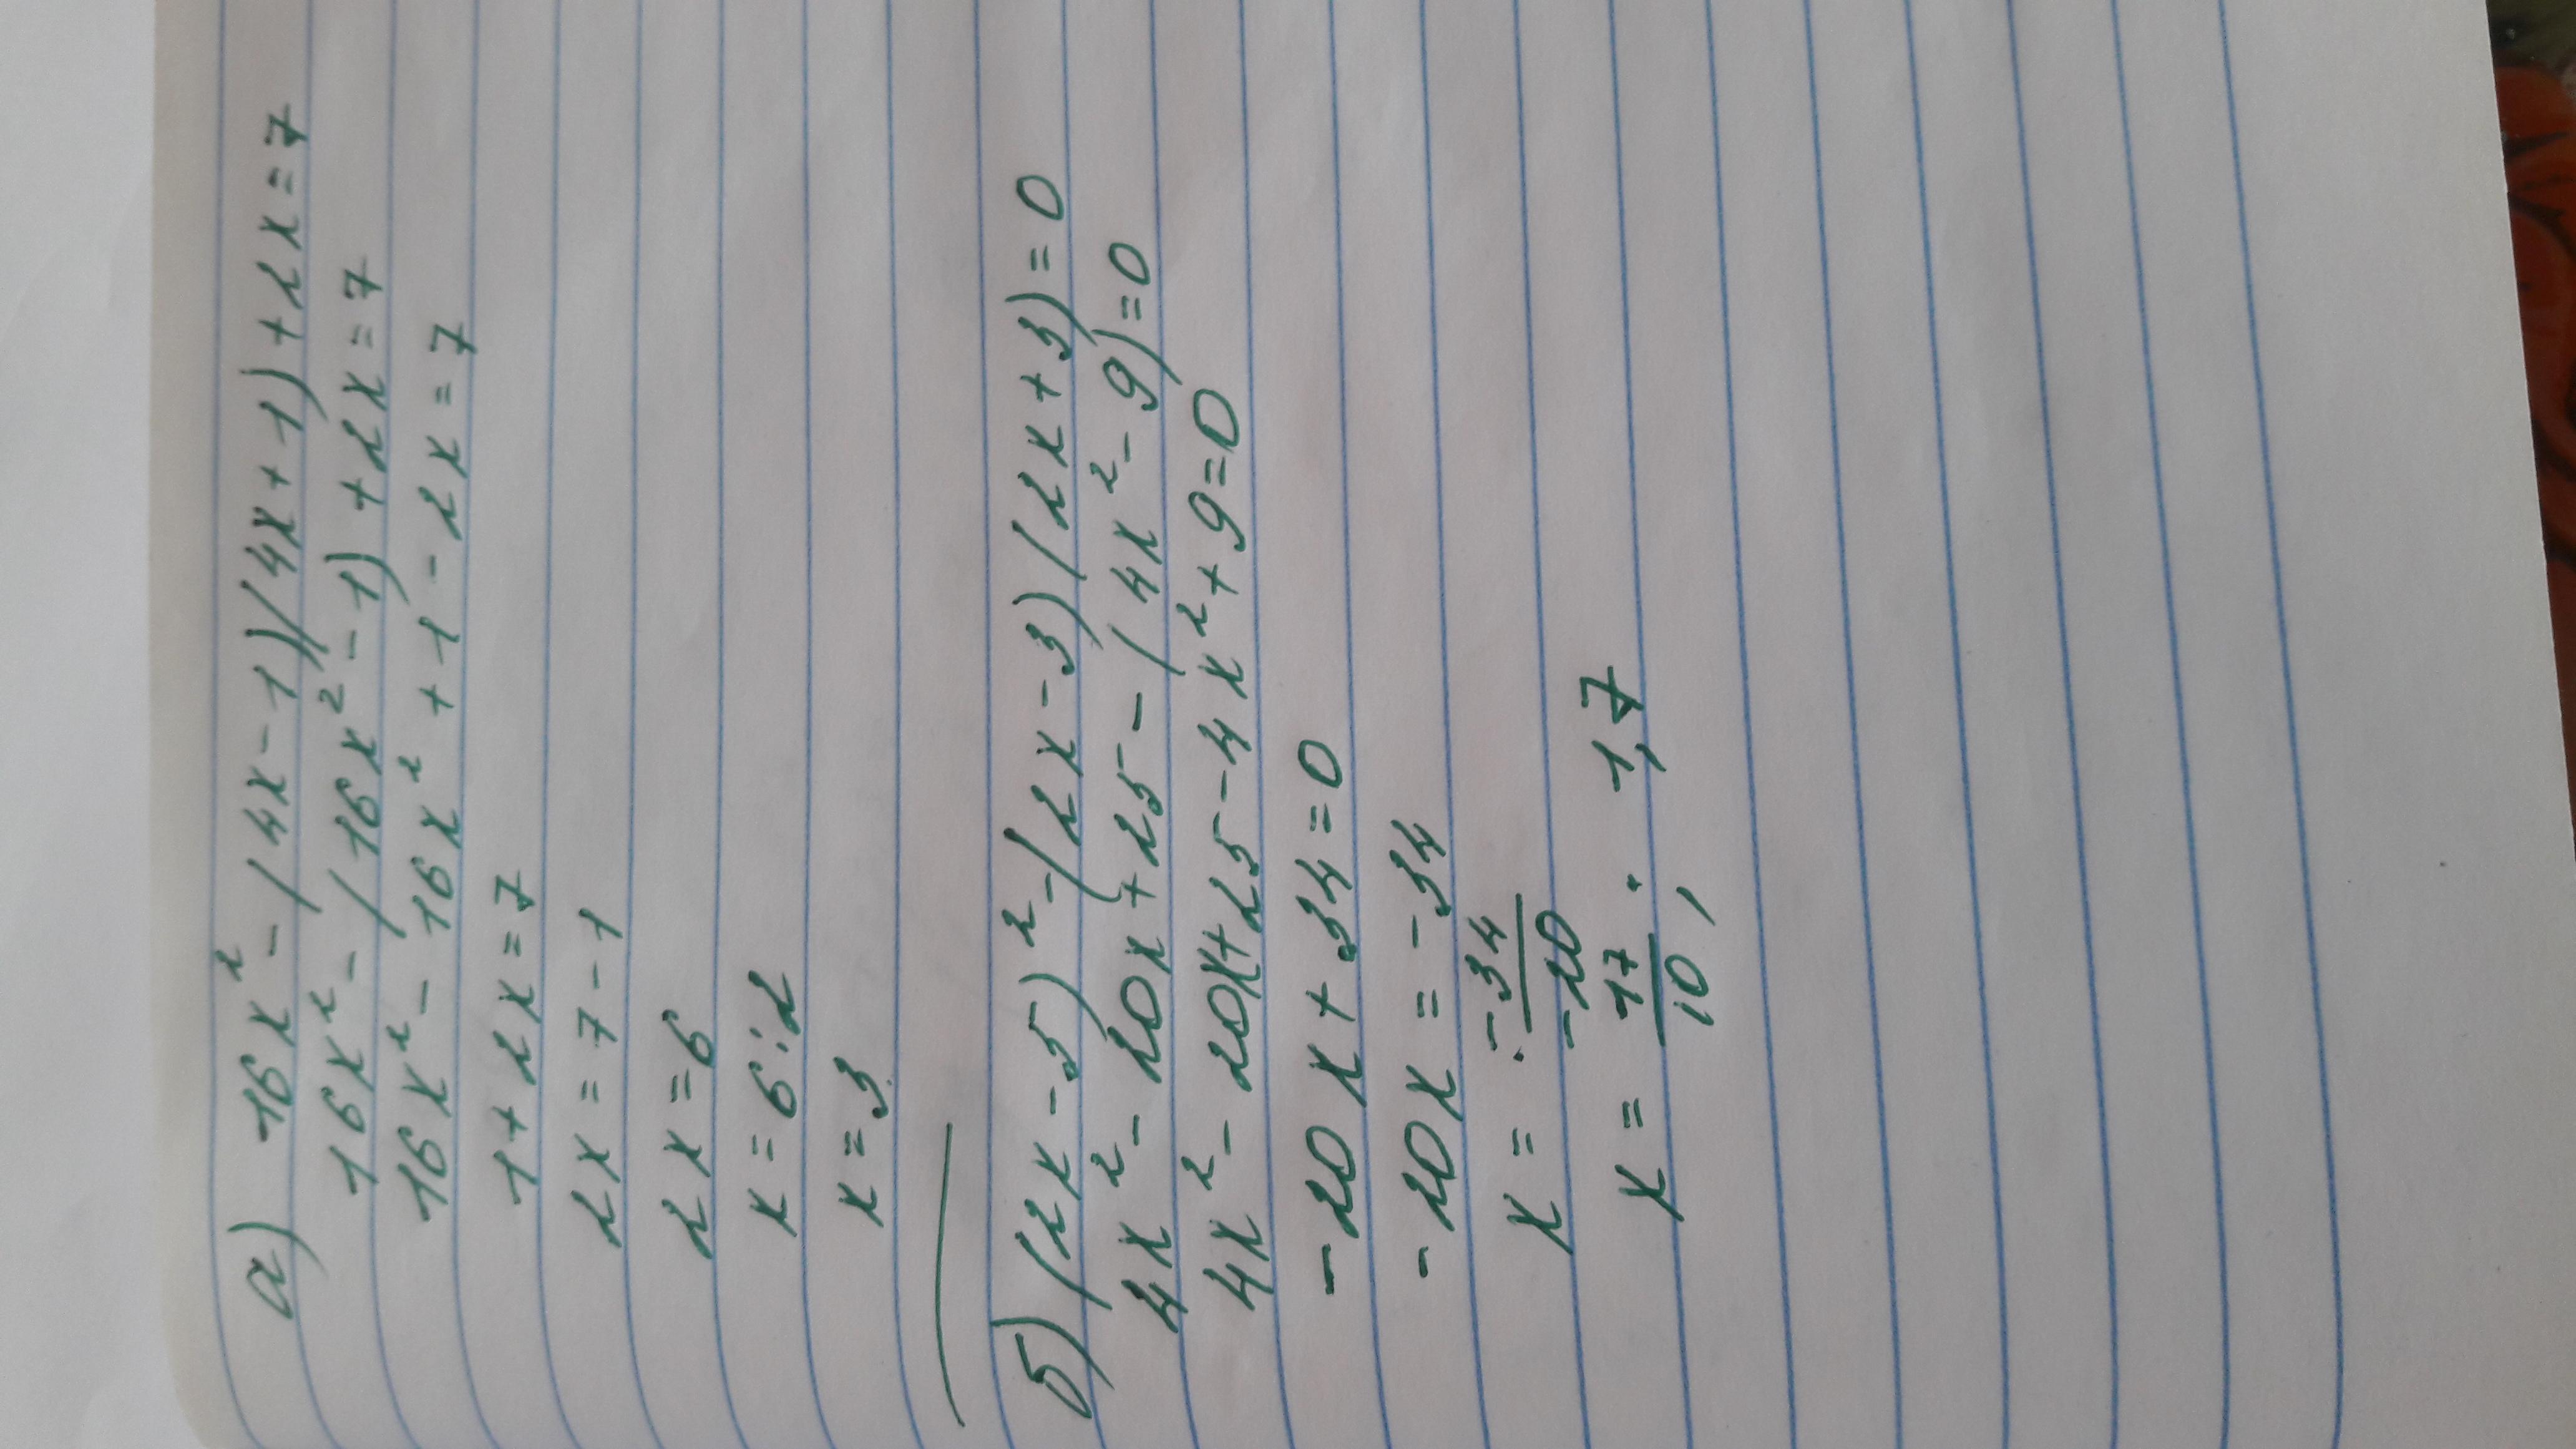 а) 16x² - (4x - 1)(4x + 1) + 2x = 7
16x² - (16x² - 1) + 2x = 7
16x² - 16x² + 1 - 2x = 7
1 + 2x = 7
2x = 7 - 1
2x = 6
x = 6 : 2
x = 3
б) (2x - 5)² - (2x - 3)(2x + 3) = 0
4x² - 20x + 25 - (4x² - 9) = 0
4x² - 20x + 25 - 4x² + 9 = 0
-20x + 34 = 0
-20x = -34
x = -34/-20
x = 17/10; 1,7